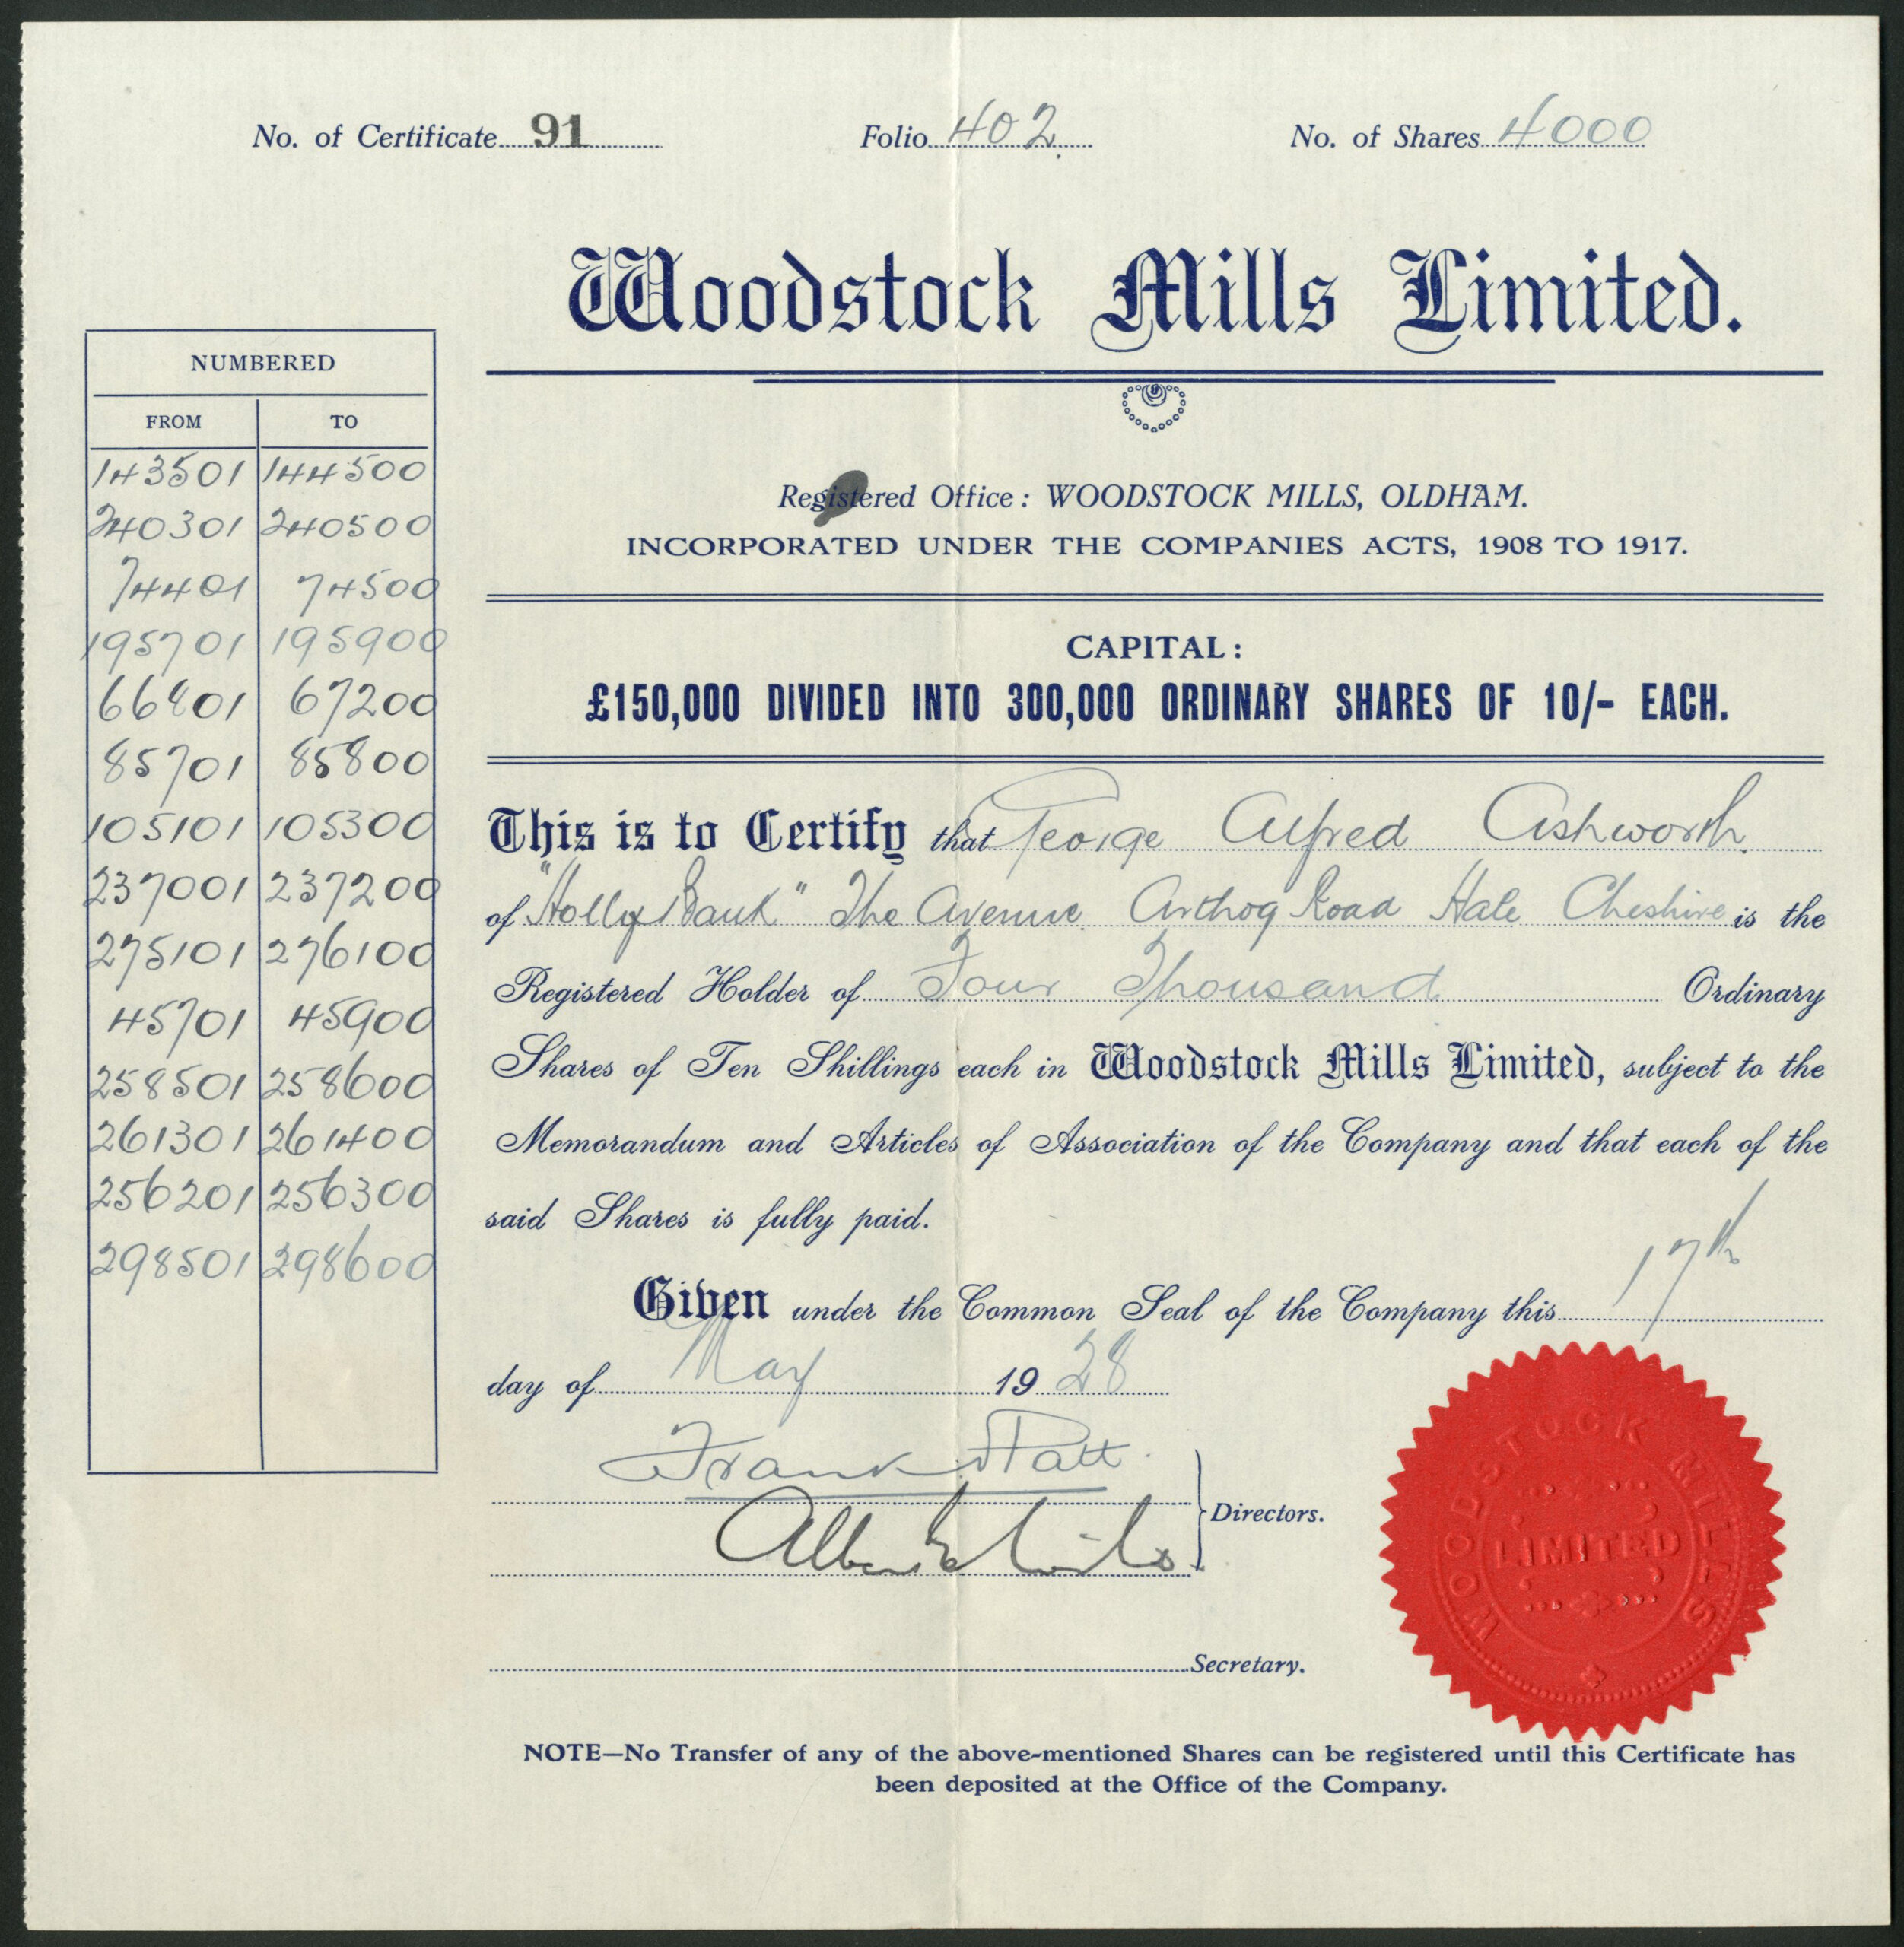 No. of Certificate 91 Folio 402. No. of Shares 4000
Woodstock Mills Limited.
Registered Office: WOODSTOCK MILLS, OLDHAM.
INCORPORATED UNDER THE COMPANIES ACTS, 1908 TO 1917.
CAPITAL:
£150,000 DIVIDED INTO 300,000 ORDINARY SHARES OF 10/- EACH.
NUMBERED
FROM TO
143501 144500
240301 240500
74401 74500
195701 195900
66801 67200
85701 85800
105101 105300
237001 237200
275101 276100
45701 45900
258501 258600
261301 261400
256201 256300
298501 298600
This is to Certify that George Alfred Ashworth.
of "Holly Bank" The Avenue. Arthog Road Hale Cheshire is the
Registered Holder of Four Thousand Ordinary
Shares of Ten Shillings each in Woodstock Mills Limited, subject to the
Memorandum and Articles of Association of the Company and that each of the
said Shares is fully paid.
Given under the Common Seal of the Company this 17th
day of May 1928
Frank Platt.
Directors.
Secretary.
WOODSTOCK MILLS
LIMITED
NOTE—No Transfer of any of the above-mentioned Shares can be registered until this Certificate has
been deposited at the Office of the Company.